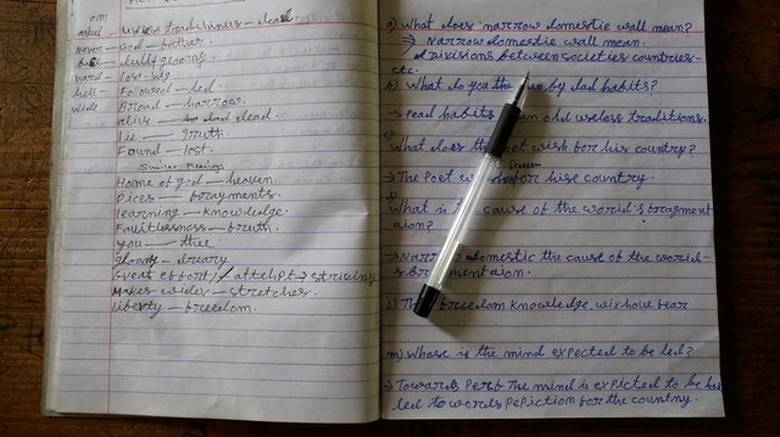 om
useless traditions - dead
never - god - bother.
dull glooming
hard - losing
hell - Followed - led.
wide Broad - narrow.
alive - dead.
Lie - truth.
Found - lost.
Similar Meanings
Home of god - heaven.
Pices - bragments.
learning - knowledge.
Faultlessness - truth.
you - thee
gloomy - druary
Great ebbort / attept → striving
Makes wider - stretches.
liberty - breedom.
a) What does narrow domestic wall mean?
→ Narrow domestic wall mean.
divisions between societies countries-
etc.
b) What do you the by dad habits?
→ Dead habits old useless traditions.
What does the poet wish bor his country?
Freedom
→ The Poet bor hise country.
What is the cause of the world's bragment
aion?
→ domestic the cause of the
breedom knowledge. without bear
m) Whose is the mind expected to be led?
→ Towards Perb The mind is expicted to be
led to words Pepiction bor the country.